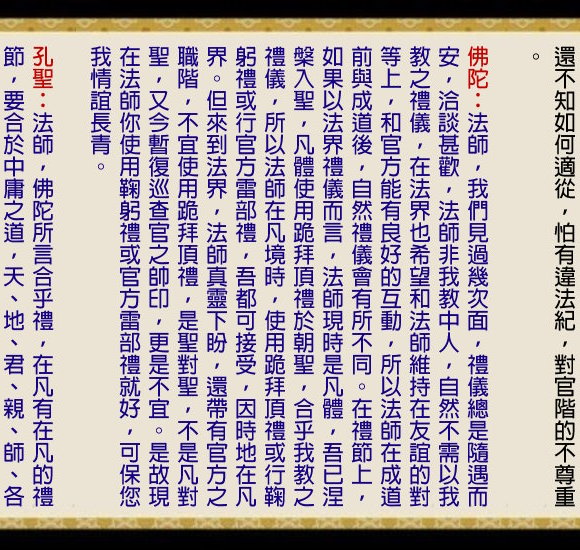 還不知如何適從，怕有違法紀，對官階的不尊重
。
佛陀：法師，我們見過幾次面，禮儀總是隨遇而
安，洽談甚歡，法師非我教中人，自然不需以我
教之禮儀，在法界也希望和法師維持在友誼的對
等上，和官方能有良好的互動，所以法師在成道
前與成道後，自然禮儀會有所不同。在禮節上，
如果以法界禮儀而言，法師現時是凡體，吾已涅
槃入聖，凡體使用跪拜頂禮於朝聖，合乎我教之
禮儀，所以法師在凡境時，使用跪拜頂禮或行鞠
躬禮或行官方雷部禮，吾都可接受，因時地在凡
界。但來到法界，法師真靈下盼，還帶有官方之
職階，不宜使用跪拜頂禮，是聖對聖，不是凡對
聖，又今暫復巡查官之帥印，更是不宜。是故現
在法師你使用鞠躬禮或官方雷部禮就好，可保您
我情誼長青。
孔聖：法師，佛陀所言合乎禮，在凡有在凡的禮
節，要合於中庸之道，天、地、君、親、師、各